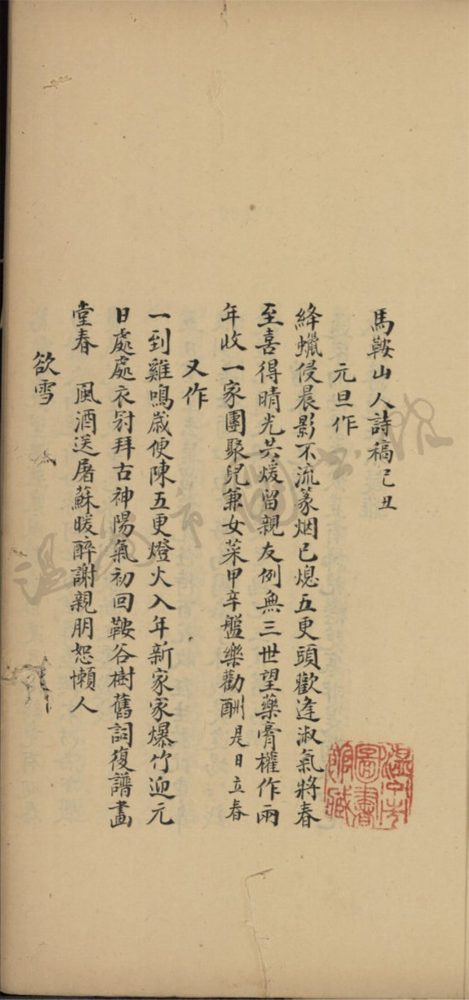 馬鞍山人詩稿己丑
元旦作
絳蠟侵晨影不流篆烟已熄五更頭歡逢淑氣將春
至喜得晴光共煖留親友例無三世望藥膏權作兩
年收一家團聚兒兼女菜甲辛盤樂勸酬是日立春
又作
一到雞鳴歲便陳五更燈火入年新家家爆竹迎元
日處處衣冠拜古神陽氣初回鞍谷樹舊詞復譜畫
堂春 風酒送屠蘇暖醉謝親朋恕懶人
欲雪
溫州市圖書館藏